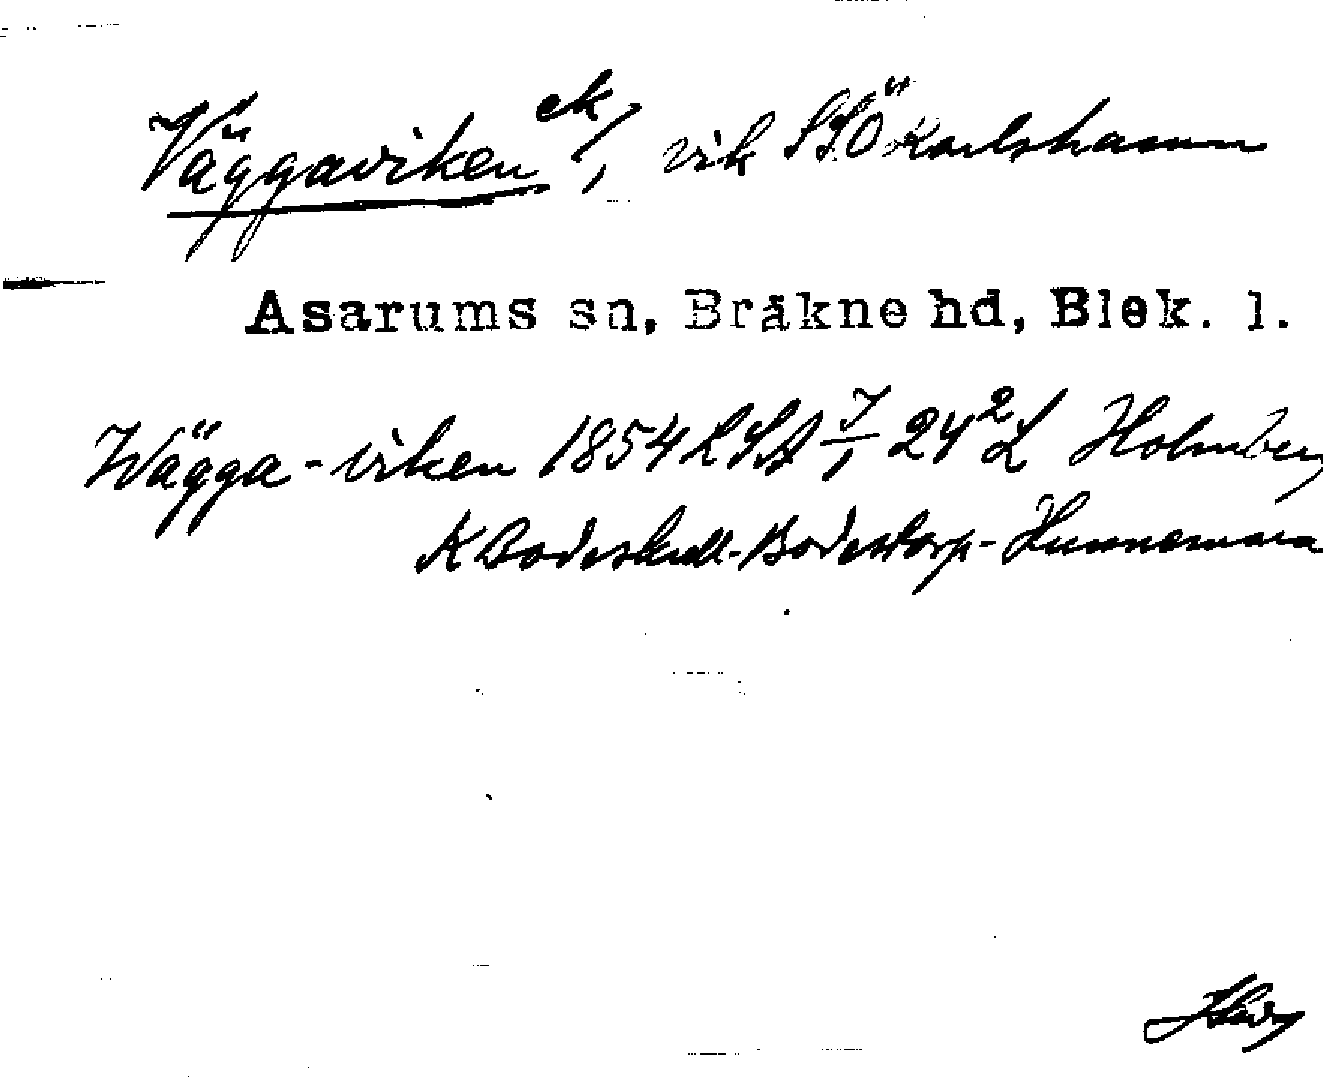 Väggaviken ek/, vik SSÖ Karlshamn
Asarums sn, Bräkne hd, Blek. l.
Wägga-viken 1854 LSA 7/1, 24² L Holmberg
K Bodeskull-Bodestorp-Hunnemara